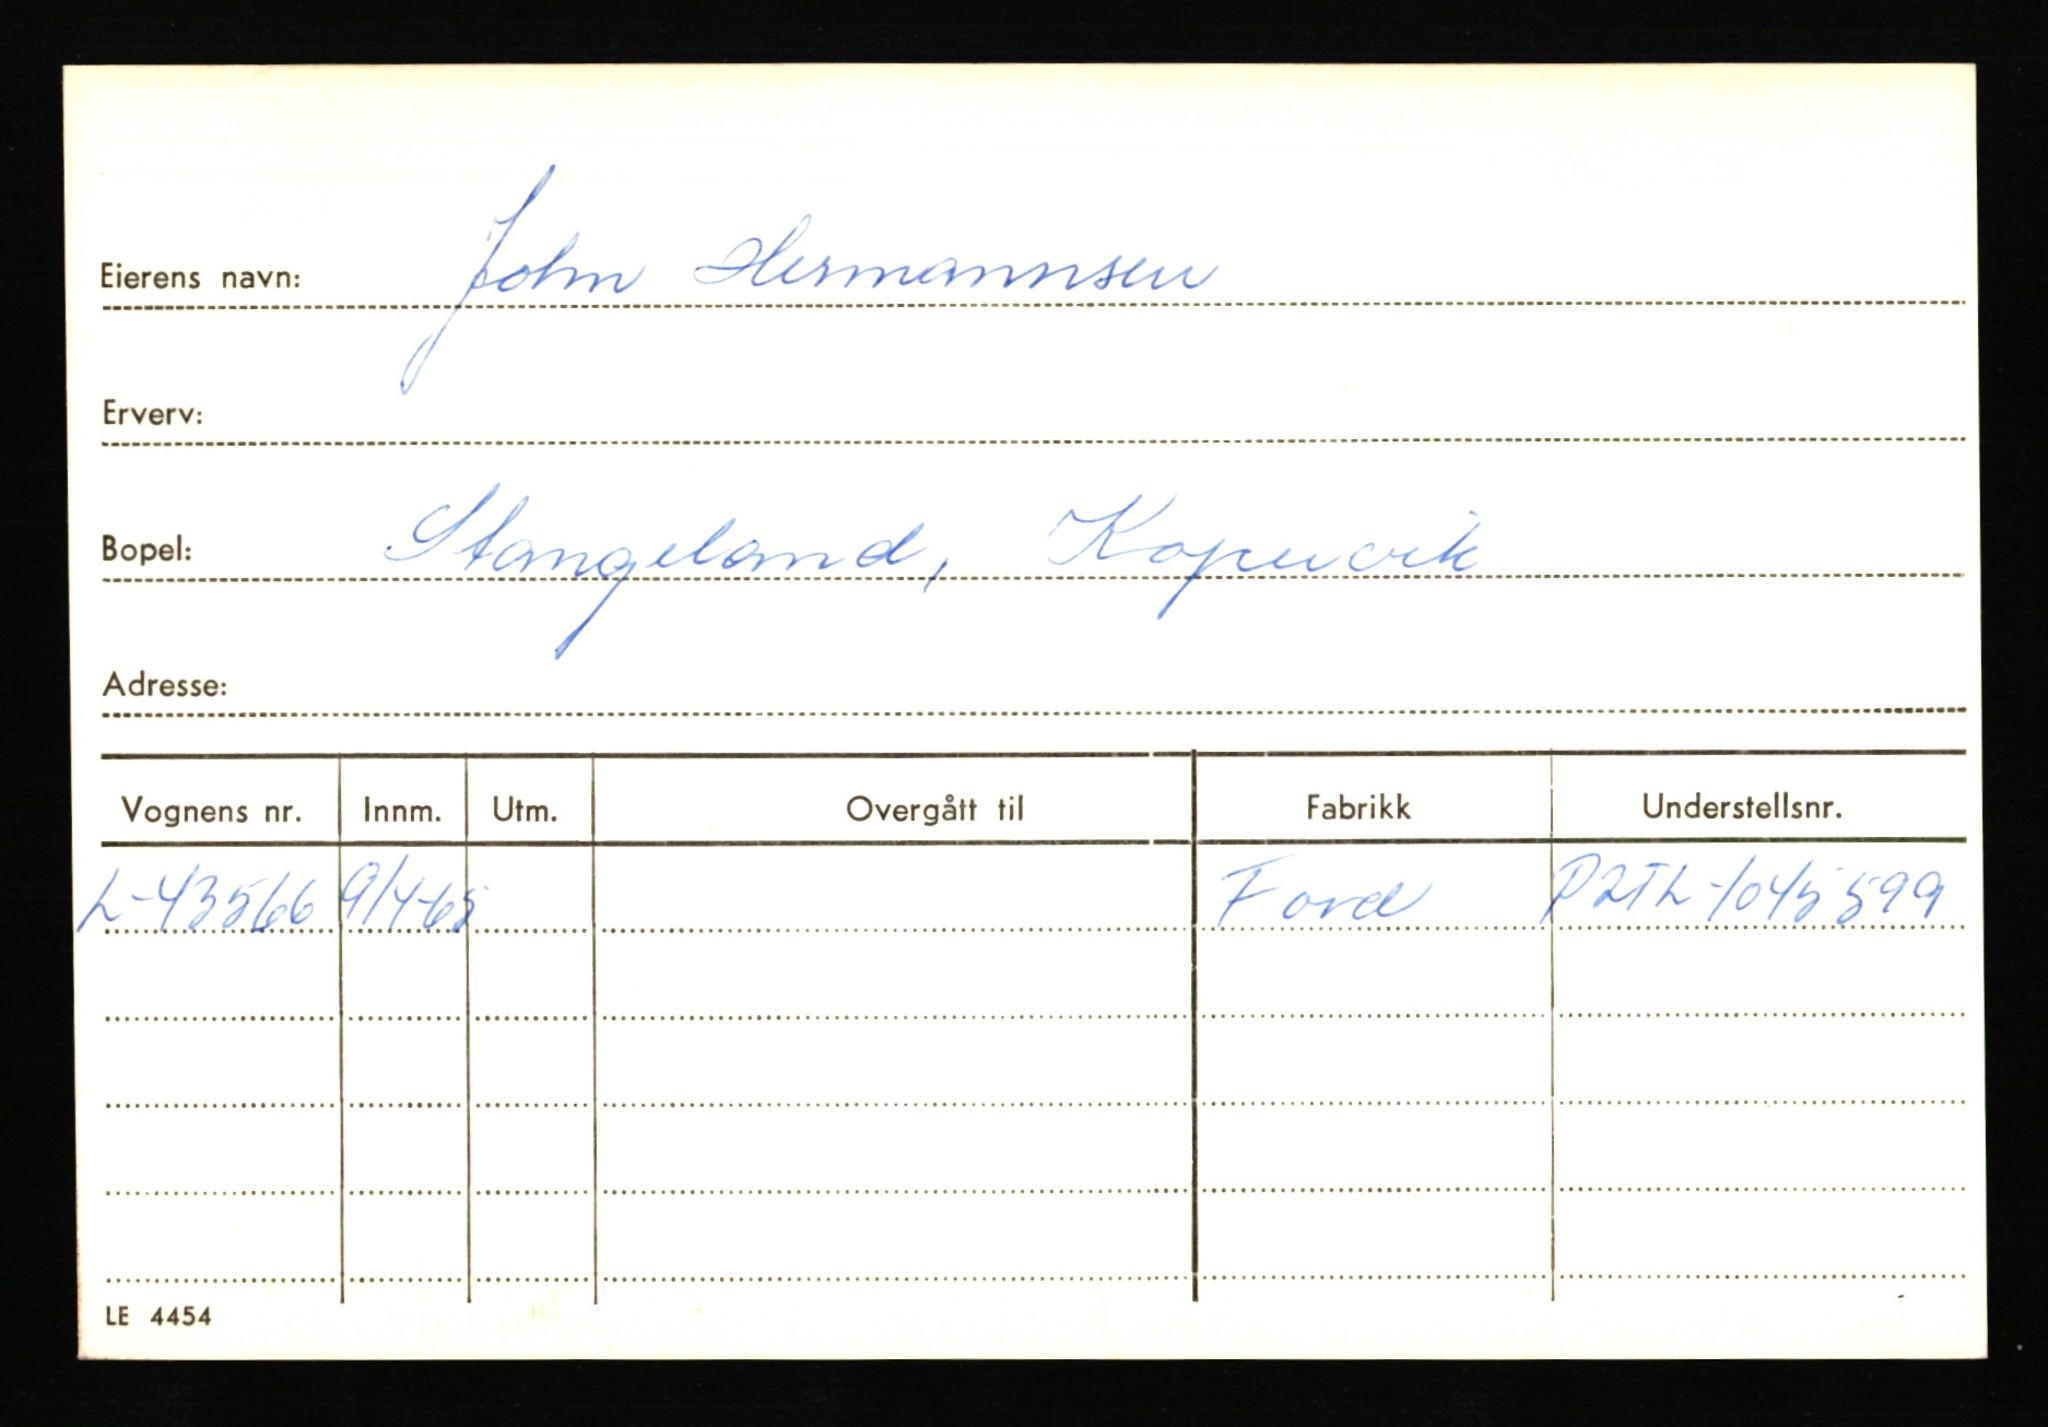 Eierens navn: John Hermannsen
Erverv:
Bopel: Stangeland, Kopervik
Adresse:
Vognens nr. Innm. Utm. Overgått til Fabrikk Understellsnr.
L-43566 9/4-65 Ford P2TL-1045599
LE 4454